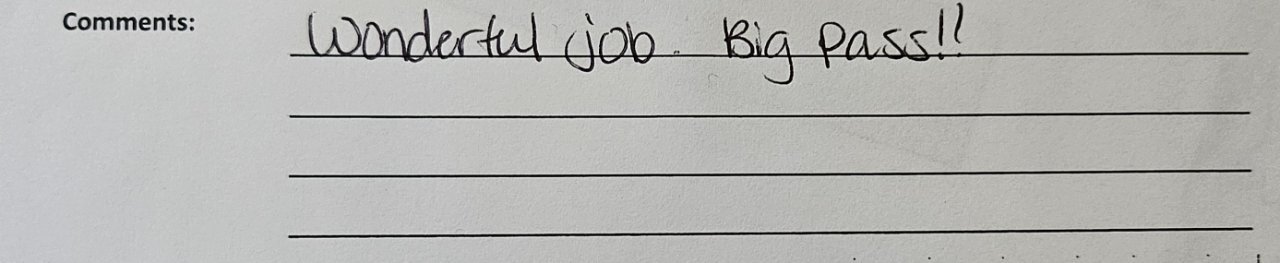 Comments: Wonderful job. Big Pass!!